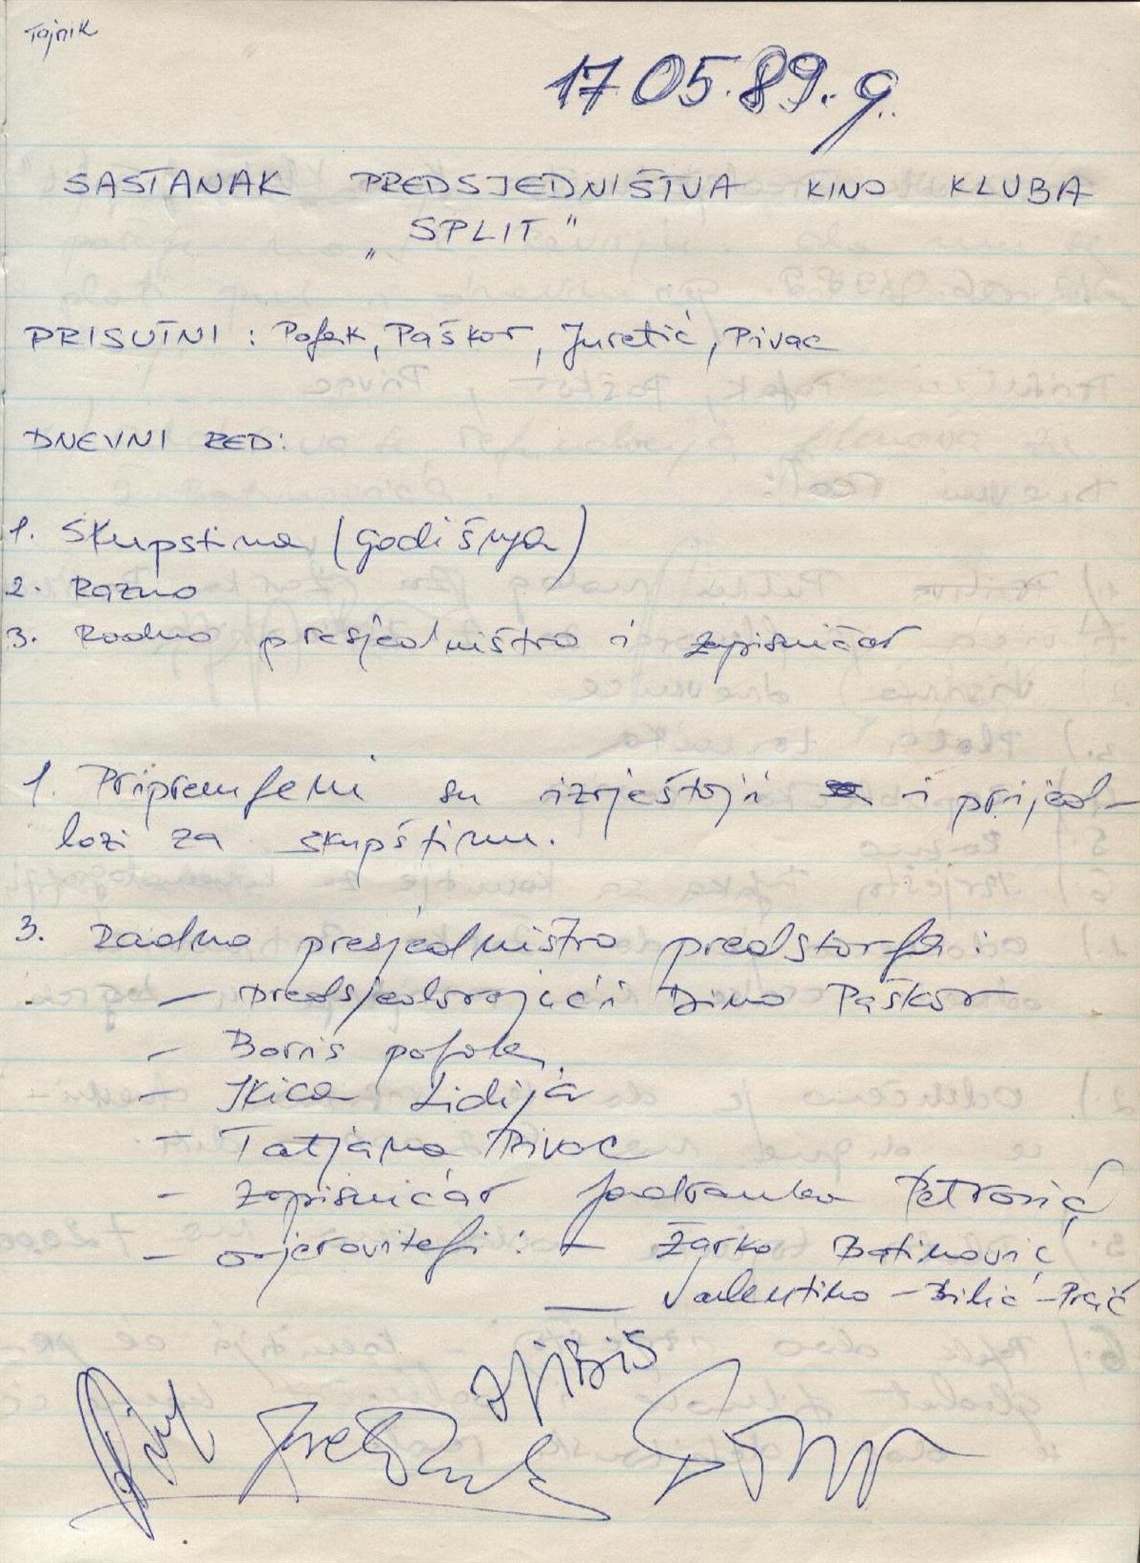 Tajnik
17.05.89.g.
SASTANAK PREDSJEDNIŠTVA KINO KLUBA
„SPLIT"
PRISUTNI: Poljak, Paškov, Juretić, Pivac
DNEVNI RED:
1. Skupstina (godišnja)
2. Razno
3. Radno presjedništvo i zapisničar
1. Pripremljeni su izvještaji i prijed-
lozi za skupštinu.
3. Radno presjedništvo predstavlja:
- Predsjedavajući Dino Paškov
- Boris poljak
- Ikica Lidija
- Tatjana Pivac
- zapisničar Jadranka Petrović
- ovjerovitelji: - Žarko Batinović
- Valentino - Bilić - Prcić